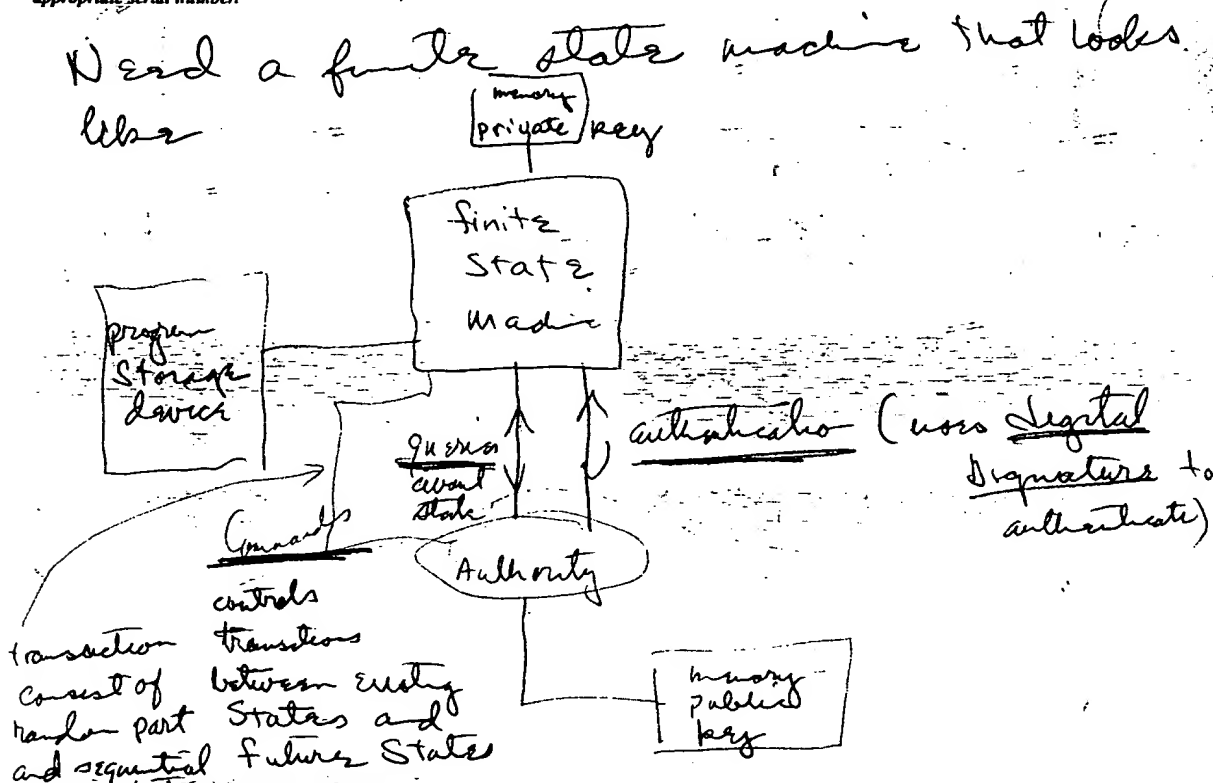 appropriate serial number.
Need a finite state machine that looks
like
memory
private key
finite
state
machine
program
storage
device
queries
about
state
authentication (uses digital
signature to
authenticate)
Commands
Authority
controls
transitions
between existing
States and
future States
transaction
consist of
random part
and sequential
memory
public
key